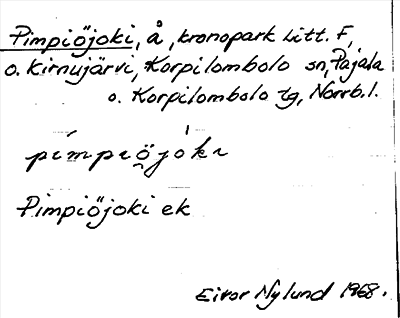 Pimpiöjoki, å, kronopark Litt. F,
o. Kirnujärvi, Korpilombolo sn, Pajala
o. Korpilombolo tg, Norrb. l.
pìmpiöjók​i
Pimpiöjoki ek
Eivor Nylund 1968.